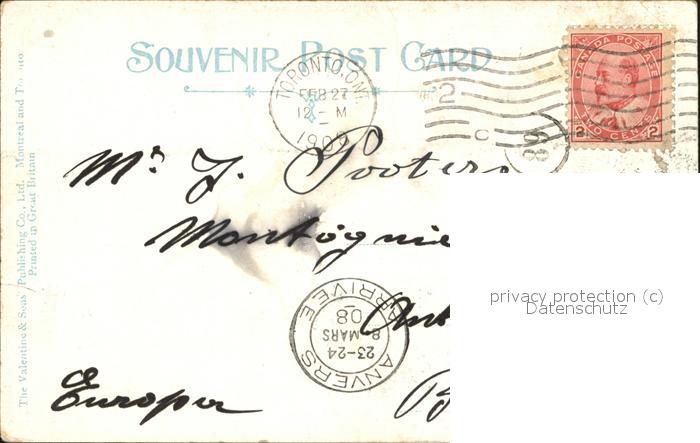 SOUVENIR POST CARD
TORONTO, ONT.
FEB 27
12 - M
CANADA POSTAGE
2 TWO CENTS 2
2
C
Mr. J. Pooters
privacy protection (c)
Datenschutz
ANVERS
23-24
8 MARS
08
ARRIVEE
Europa
The Valentine & Sons Publishing Co., Ltd. Montreal and Toronto
Printed in Great Britain